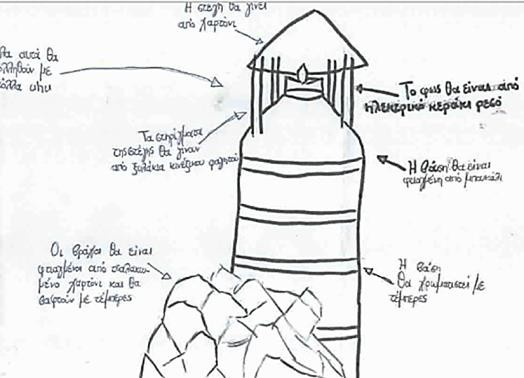 Η στέγη θα γίνει
από χαρτόνι
αυτά θα
κολληθούν με
κόλλα
Το φως θα είναι από
ηλεκτρικό κεράκι ρεσό
Τα στηρίγματα
της στέγης θα γίνουν
από ξυλάκια κινέζικου φαγητού
Η βάση θα είναι
φτιαγμένη από μπουκάλι
Οι βράχοι θα είναι
φτιαγμένοι από
μένο χαρτόνι και θα
βαφτούν με τέμπερες
Η βάση
θα χρωματιστεί με
τέμπερες